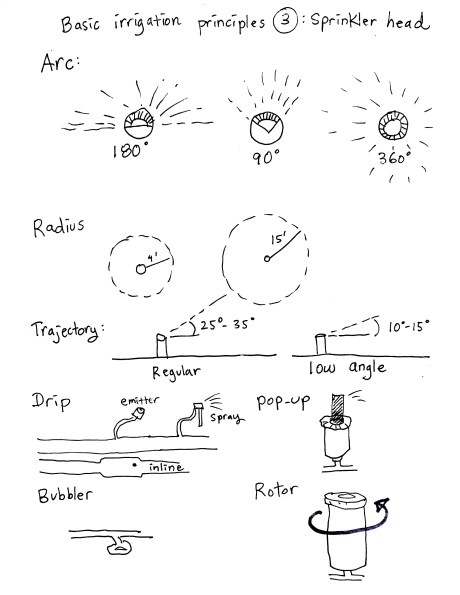 Basic irrigation principles 3: Sprinkler head
Arc:
180° 90° 360°
Radius
4' 15'
Trajectory: 25°-35° 10°-15°
Regular low angle
Drip emitter spray pop-up
inline
Bubbler Rotor